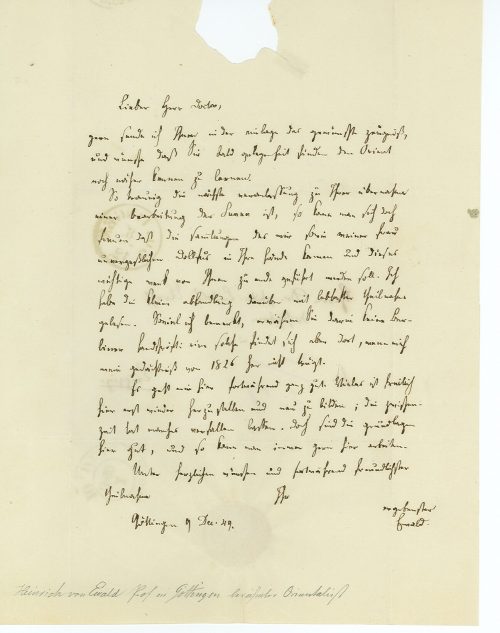 Lieber Herr Doctor,
gern sende ich Ihnen in der einlage das gewünschte zeugniß,
und wünsche daß Sie bald gelegenheit finden den Orient
noch näher kennen zu lernen.
So traurig die nächste veranlassung zu Ihrer übernahme
einer bearbeitung der ist, so kann man sich doch
freuen daß die samlungen des mir sowie meiner frau
unvergeßlichen in Ihre hände kommen und dieses
wichtige werk von Ihnen zu ende geführt werden soll. Ich
habe die kleine abhandlung darüber mit lebhafter theilnahme
gelesen. Soviel ich bemerkt, erwähnen Sie darin keine Ber-
liner handschrift: eine solche findet sich aber dort, wenn mich
mein gedächtniß von 1826 her nicht trügt.
Es geht mir hier fortwährend ganz gut. Vieles ist freilich
hier erst wieder herzustellen und neu zu bilden; die zwischen-
zeit hat manches verfallen lassen. doch sind die grundlagen
hier gut, und so kann man immer gern hier arbeiten.
Unter herzlichen wünschen und fortwährend freundlichster
theilnahme Ihr
ergebenster
Göttingen 9 Dec. 49. Ewald.
Heinrich von Ewald Prof in Göttingen berühmter Orientalist